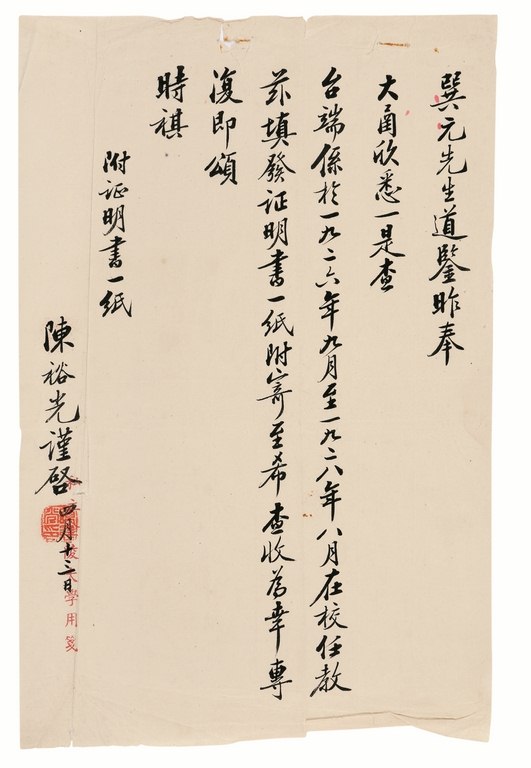 巽元先生道鑒昨奉
大函欣悉一是查
台端係於一九二六年九月至一九二八年八月在校任教
茲填發証明書一紙附寄至希查收為幸專
復即頌
時祺
附証明書一紙
陳裕光謹啓 四月十二日
陵大學用箋